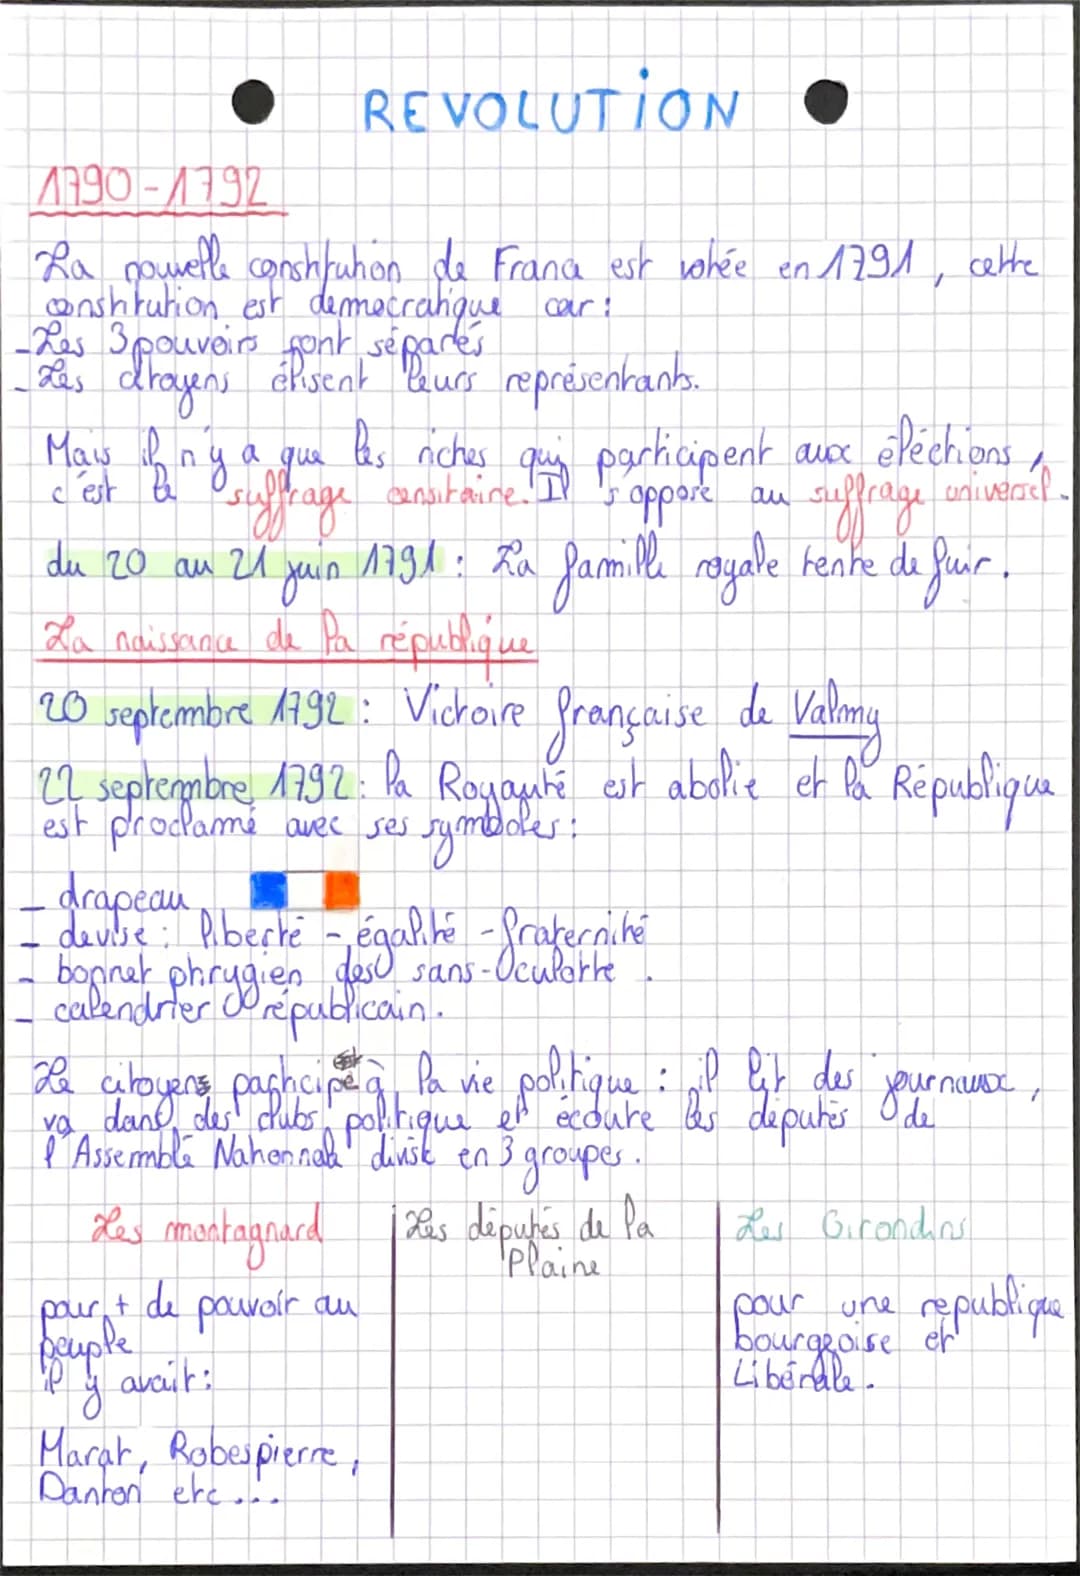 REVOLUTION
1790-1792
La nouvelle constitution de France est votée en 1791, cette
constitution est democratique car :
- Les 3 pouvoirs sont séparés
- Les citoyens élisent leurs représentants.
Mais il n'y a que les riches qui participent aux éléctions,
c'est le suffrage censitaire. Il s'oppose au suffrage universel.
du 20 au 21 juin 1791 : La famille royale tente de fuir.
La naissance de la république
20 septembre 1792 : Victoire française de Valmy
22 septembre 1792 : la Royauté est abolie et la République
est proclamé avec ses symboles :
- drapeau
- devise : liberté - égalité - fraternité
- bonnet phrygien des sans-culotte.
- calendrier républicain.
Le citoyens participe à la vie politique : il lit des journaux,
va dans des clubs politique et écoute les députés de
l'Assemblé Nationnale divisé en 3 groupes.
Les montagnard
Les députés de la
Plaine
Les Girondins
pour + de pouvoir au
peuple
il y avait :
Marat, Robespierre,
Danton etc ...
pour une republique
bourgeoise et
Libérale.